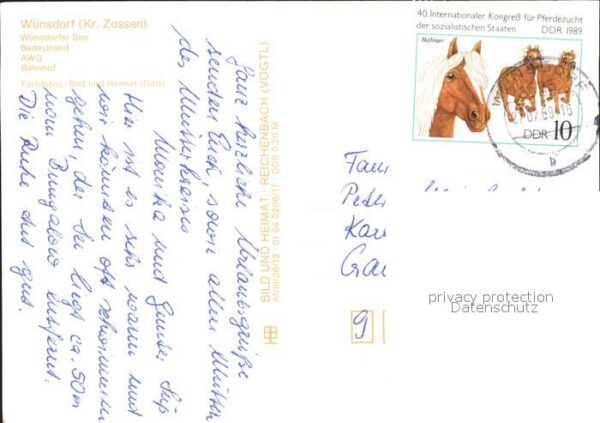 Wünsdorf (Kr. Zossen)
Wünsdorfer See
Badestrand
AWG
Bahnhof
Farbfotos: Bild und Heimat (Darr)
Ganz herzliche Urlaubsgrüße
senden Euch, sowie allen
Monika und
Hier ist es sehr warm und
wir können oft schwimmen
gehen, der See liegt ca. 50m
vom Bungalow entfernt.
Die Ruhe tut gut.
BILD UND HEIMAT · REICHENBACH (VOGTL)
A1/III/26/13 · 01 04 0206/17 · DDR 0,20 M
40. Internationaler Kongreß für Pferdezucht
der sozialistischen Staaten DDR 1989
Haflinger
DDR 10
b
Fam
Peter
Kar
Ga
9
privacy protection
Datenschutz